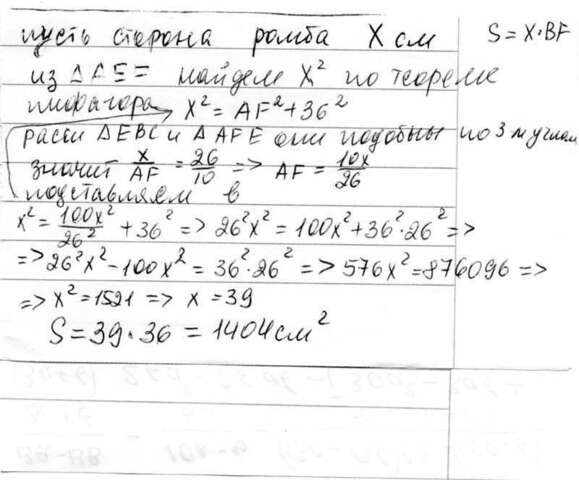 пусть сторона ромба X см
S = X·BF
из ΔAEF найдем X² по теореме
пифагора X² = AF² + 36²
расси ΔEBC и ΔAFE они подобны по 3 м углам
значит X/AF = 26/10 => AF = 10x/26
подставляем в
x² = 100x²/26² + 36² => 26²x² = 100x² + 36²·26² =>
=> 26²x² - 100x² = 36²·26² => 576x² = 876096 =>
=> x² = 1521 => x = 39
S = 39·36 = 1404 см²